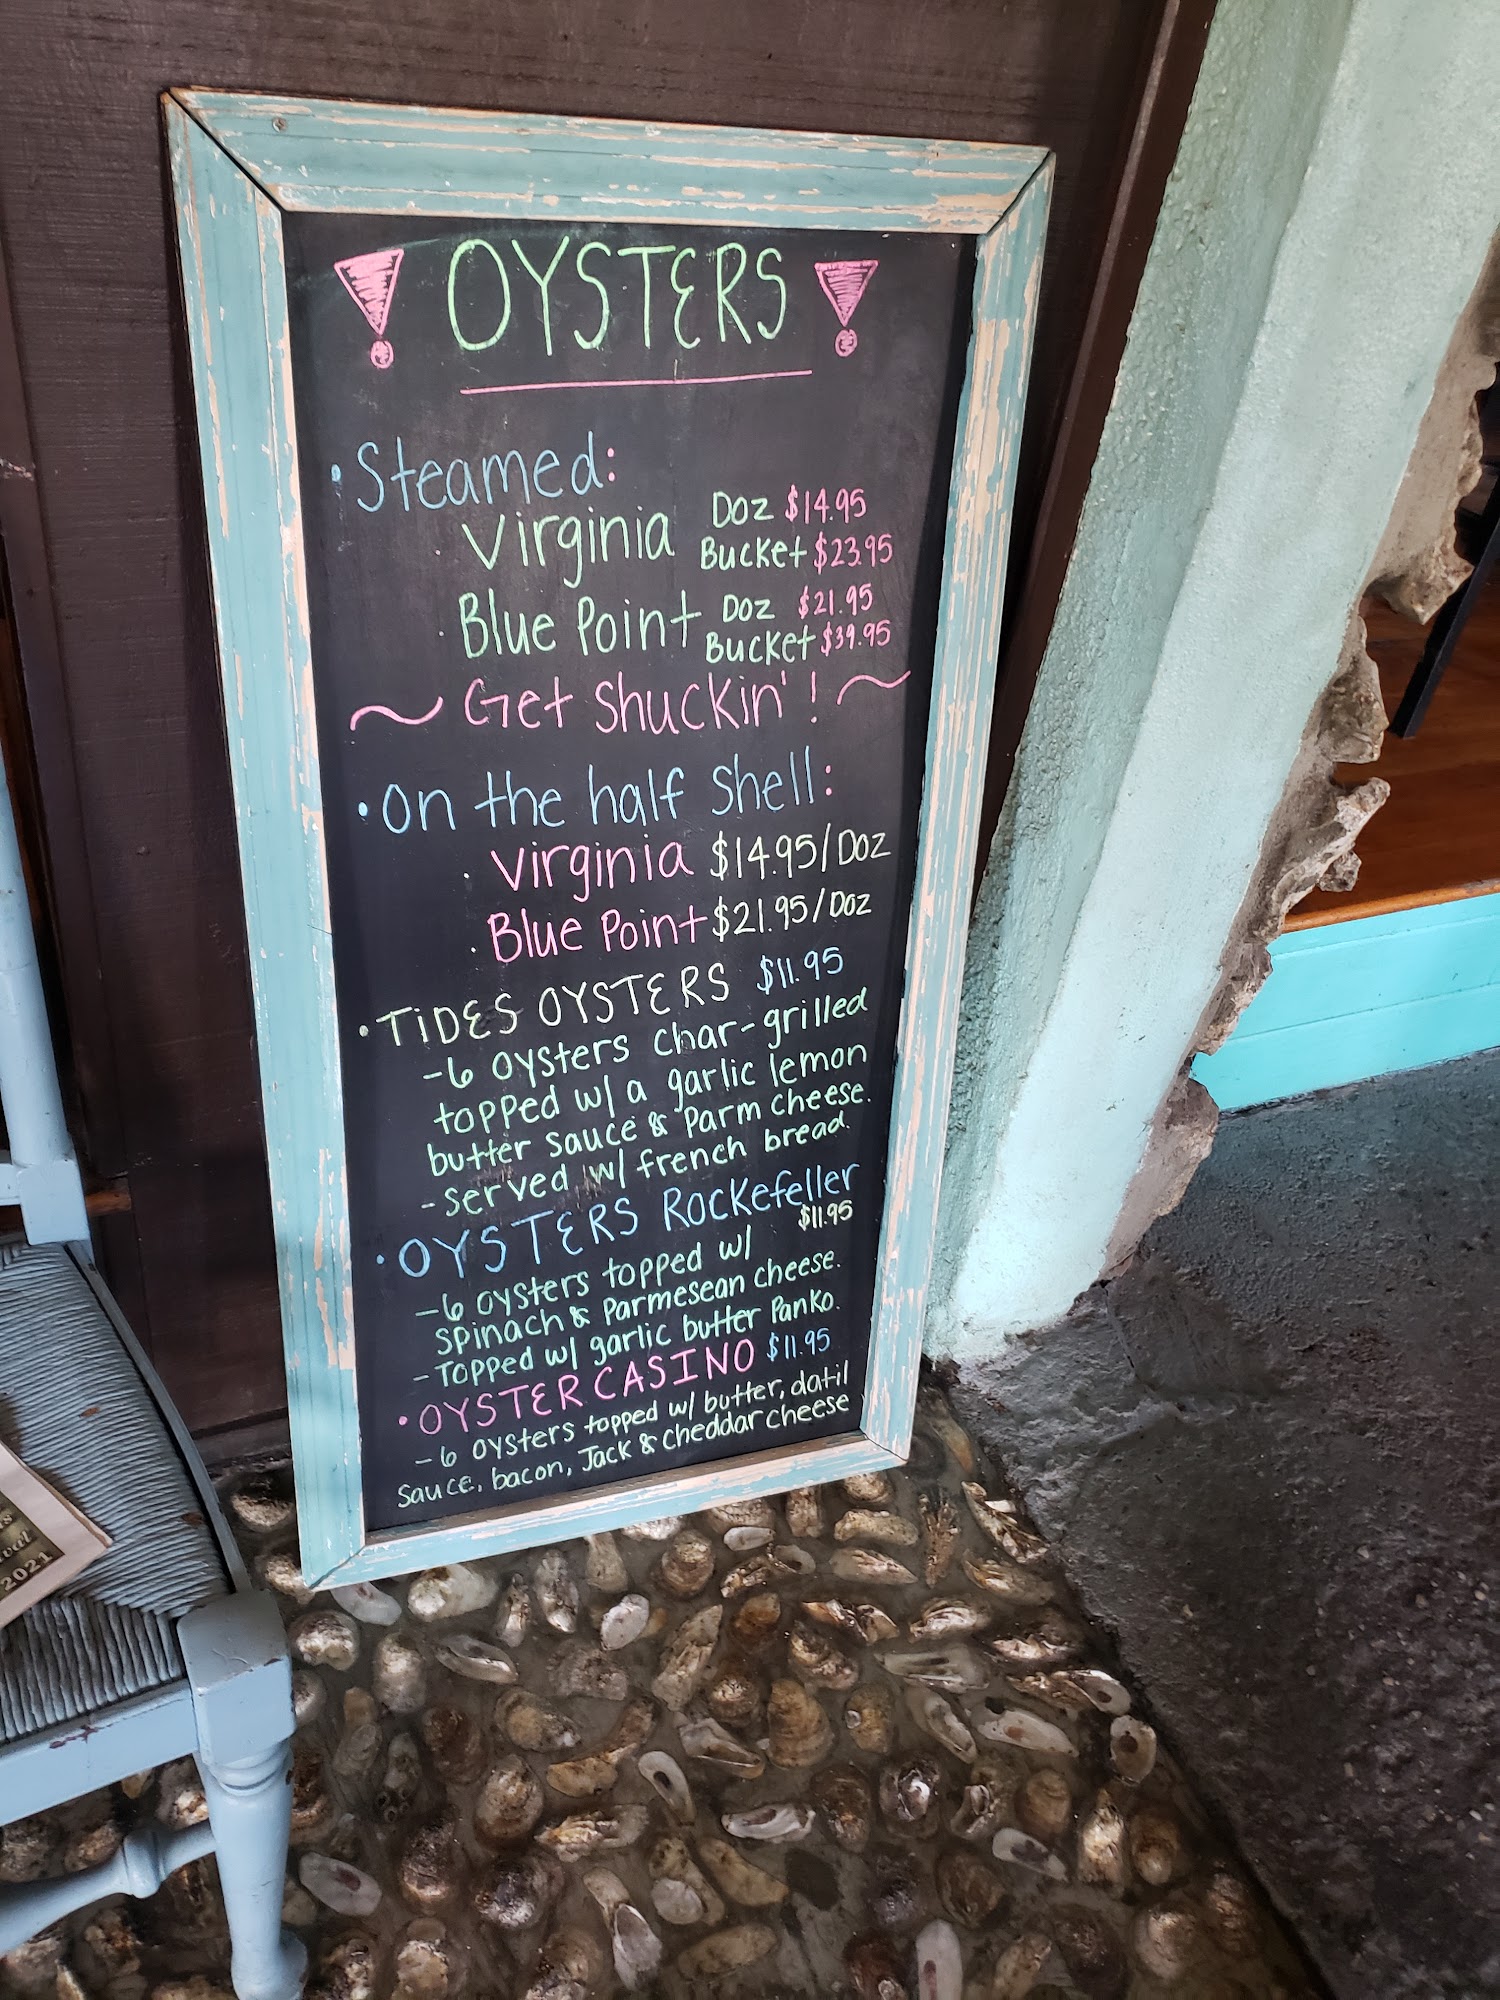 ! OYSTERS !
• Steamed:
· Virginia Doz $14.95
Bucket $23.95
· Blue Point Doz $21.95
Bucket $39.95
~ Get Shuckin'! ~
• On the half Shell:
· Virginia $14.95/Doz
· Blue Point $21.95/Doz
• TIDES OYSTERS $11.95
-6 oysters char-grilled
topped w/ a garlic lemon
butter sauce & Parm cheese.
- served w/ french bread.
• OYSTERS Rockefeller
$11.95
-6 oysters topped w/
spinach & Parmesean cheese.
- Topped w/ garlic butter Panko.
• OYSTER CASINO $11.95
-6 oysters topped w/ butter, datil
sauce, bacon, Jack & cheddar cheese
2021